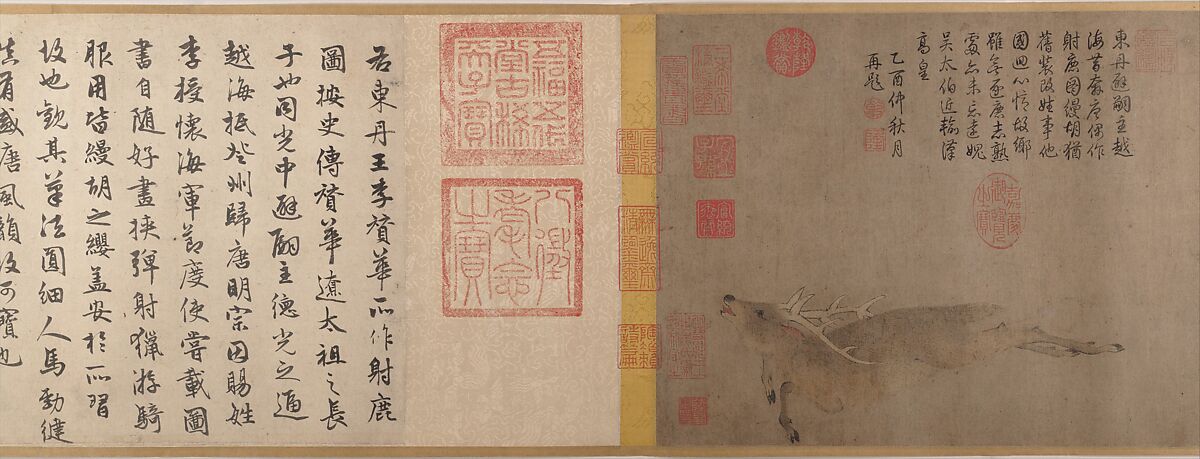 東丹避嗣主越
海昔奔唐偶作
射鹿圖縵胡猶
舊裝改姓事他
國囬心故鄉
雖無逐鹿志熟
處亦未忘遠媿
吳太伯近輸漢
高皇
乙酉仲秋月
再題
乾隆鑒賞
嘉慶御覽之寶
三希堂精鑑璽
宜子孫
五福五代堂古稀天子寶
八徵耄念之寶
右東丹王李贊華所作射鹿
圖按史傳贊華遼太祖之長
子也同光中避嗣主德光之逼
越海抵登州歸唐明宗因賜姓
李授懷軍節度使嘗載圖
書自随好畫挾彈射獵游騎
服用皆縵胡之纓盖安於所習
故也觀其筆法圓細人馬勁健
真有盛唐風韻可寶也